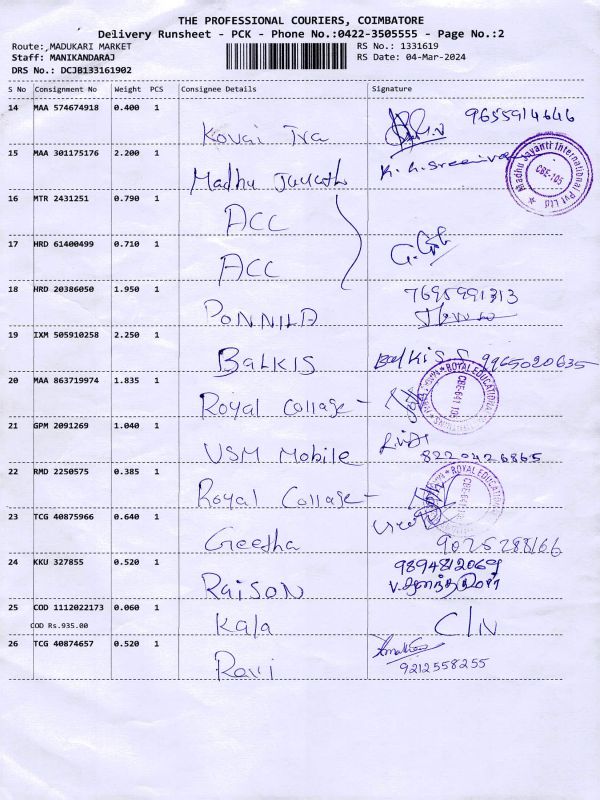 THE PROFESSIONAL COURIERS, COIMBATORE
Delivery Runsheet - PCK - Phone No.:0422-3505555 - Page No.:2
Route:,MADUKARI MARKET RS No.: 1331619
Staff: MANIKANDARAJ RS Date: 04-Mar-2024
DRS No.: DCJB133161902
S No Consignment No Weight PCS Consignee Details Signature
14 MAA 574674918 0.400 1 9655914646
Kovai Tra
15 MAA 301175176 2.200 1
Madhu Jayanthi
Madhu Jayanti International Pvt Ltd
CBE-105
16 MTR 2431251 0.790 1
ACC
17 HRD 61400499 0.710 1
ACC
18 HRD 20386050 1.950 1 7695991313
PONNILA
19 IXM 505910258 2.250 1
BALKIS Balkis S 9965020635
20 MAA 863719974 1.835 1
Royal Collage
ROYAL EDUCATIONAL
21 GPM 2091269 1.040 1
USM Mobile 8220426865
22 RMD 2250575 0.385 1
Royal Collage
ROYAL EDUCATIONAL
23 TCG 40875966 0.640 1
Geetha 9025288166
24 KKU 327855 0.520 1 9894812069
RAISON
25 COD 1112022173 0.060 1
COD Rs.935.00
Kala C/N
26 TCG 40874657 0.520 1
Ravi 9212558255